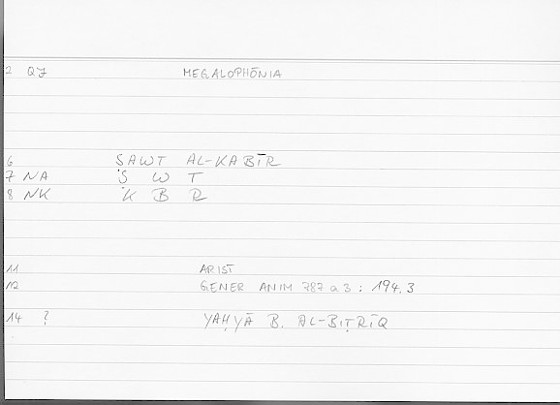 2 QJ MEGALOPHŌNIA
6 ṢAWT AL-KABĪR
7 NA Ṣ W T
8 NK K B R
11 ARIST
12 GENER ANIM 787 a 3 : 194.3
14 ? YAḤYĀ B. AL-BIṬRĪQ